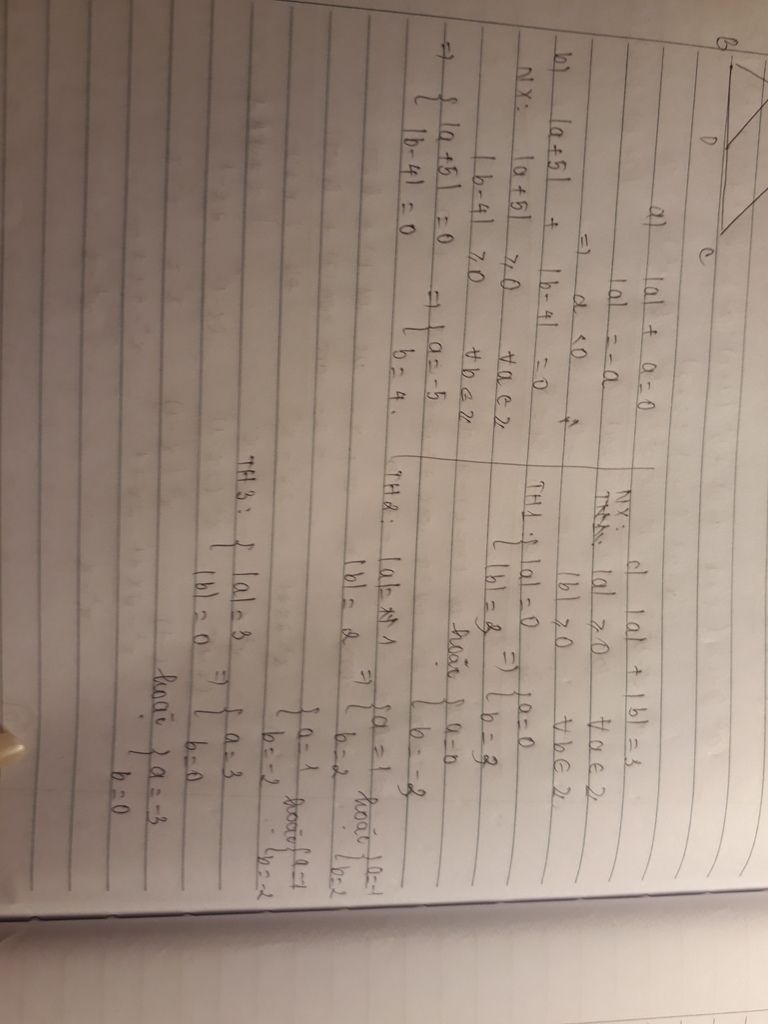 B D C
a) |a| + a = 0
|a| = -a
=> a < 0
b) |a+5| + |b-4| = 0
NX: |a+5| ⩾ 0 ∀a ∈ Z
|b-4| ⩾ 0 ∀b ∈ Z
=> { |a+5| = 0 => { a = -5
{ |b-4| = 0 { b = 4.
c) |a| + |b| = 3
NX:
|a| ⩾ 0 ∀a ∈ Z
|b| ⩾ 0 ∀b ∈ Z.
TH1: { |a| = 0 => { a = 0
{ |b| = 3 { b = 3
hoặc { a = 0
{ b = -3
TH2: |a| = 1 => { a = 1 hoặc { a = -1
|b| = 2 { b = 2 { b = 2
{ a = 1 hoặc { a = -1
{ b = -2 { b = -2
TH3: { |a| = 3 => { a = 3
{ |b| = 0 { b = 0
hoặc { a = -3
{ b = 0